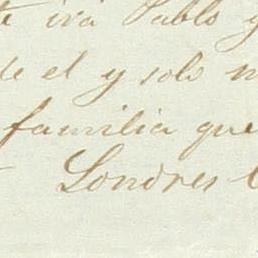 te irá Pablo y
de el y solo
familia que
Londres